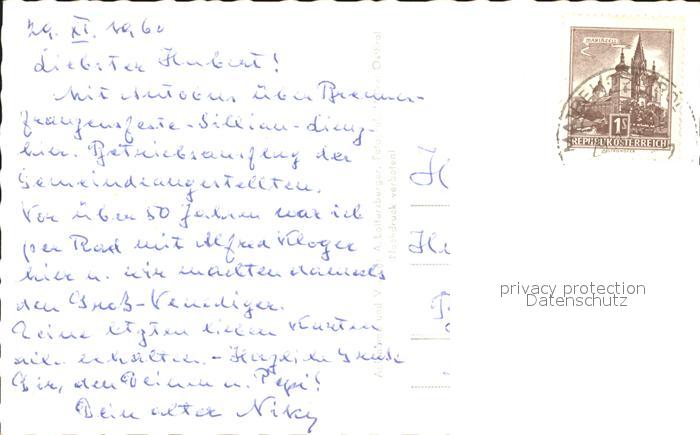 29. XI. 1960
Liebster Hubert!
Mit Autobus über Brenner-
franzensfeste-Sillian-Lienz-
hier. Betriebsausflug der
Gemeindeangestellten.
Vor über 50 Jahren war ich
per Rad mit Alfred Kloger
hier u. wir machten damals
den Groß-Venediger.
Deine letzten lieben Karten
alle erhalten. - Herzliche Grüße
Dir, den Deinen u. Pepi!
Dein alter Niky
Nachdruck verboten!
MARIAZELL
1S
REPUBLIK ÖSTERREICH
privacy protection
Datenschutz